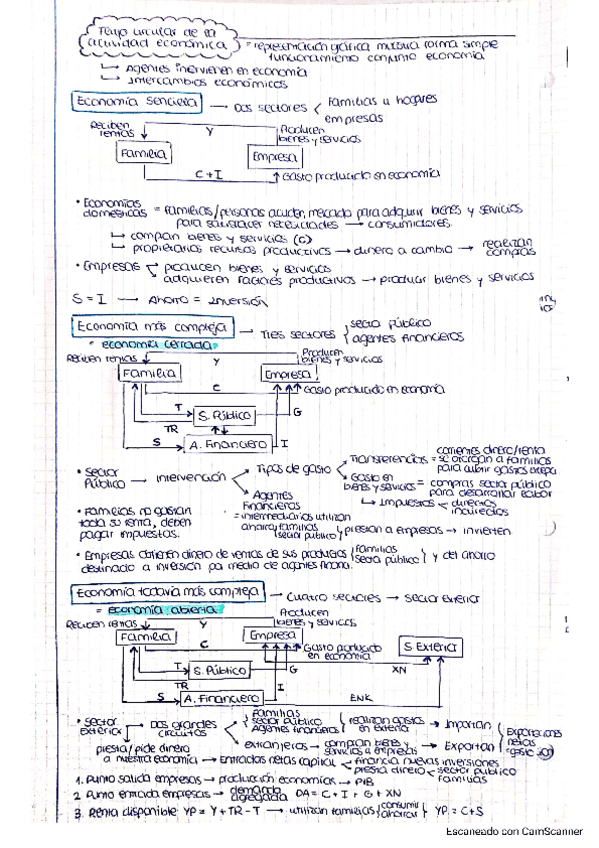 Flujo circular de la
actividad económica = representación gráfica muestra forma simple
funcionamiento conjunto economía
↳ Agentes intervienen en economía
↳ Intercambios económicos
Economía sencilla → Dos sectores < Familias u hogares
empresas
Reciben rentas Y Producen bienes y servicios
Familia Empresa
C + I Gasto producido en economía
• Economías domésticas = Familias/personas acuden mercado para adquirir bienes y servicios
para satisfacer necesidades → consumidores.
↳ compran bienes y servicios (C)
↳ propietarios recursos productivos → dinero a cambio → realizan compras
• Empresas < producen bienes y servicios
adquieren factores productivos → producir bienes y servicios
S = I → Ahorro = Inversión
Economía más compleja → Tres sectores sector público
agentes financieros
" economía cerrada "
Reciben rentas Y Producen bienes y servicios
Familia Empresa
C Gasto producido en economía
T S. Público G
TR
S A. Financiero I
• Sector Público → intervención < Tipos de gasto < Transferencias = corrientes dinero/renta
se otorgan a familias
para cubrir gastos
Gasto en bienes y servicios = compras sector público
para desarrollar labor
↳ Impuestos < directos
indirectos
Agentes Financieros
= intermediarios utilizan
ahorro familias
sector público } prestan a empresas → invierten
• Familias no gastan
toda su renta, deben
pagar impuestos.
• Empresas obtienen dinero de ventas de sus productos { Familias
Sector público } y del ahorro
destinado a inversión por medio de agentes financ.
Economía todavía más compleja → Cuatro sectores → sector exterior
= economía abierta
Reciben rentas Y Producen bienes y servicios
Familia Empresa S. Exterior
C Gasto producido en economía
T S. Público G XN
TR
S A. Financiero I ENK
• Sector exterior → Dos grandes circuitos < Familias
Sector público
Agentes financieros { realizan gastos en exterior → Importan
extranjeros → compran bienes y servicios a empresas → Exportan
Exportaciones netas
presta/pide dinero
a nuestra economía → Entradas netas capital < financia nuevas inversiones
presta dinero < sector público
familias
1. Punto salida empresas → producción económicas → PIB
2. Punto entrada empresas → demanda agregada DA = C + I + G + XN
3. Renta disponible YD = Y + TR - T → utilizan familias { consumir
ahorrar } YD = C + S
Escaneado con CamScanner